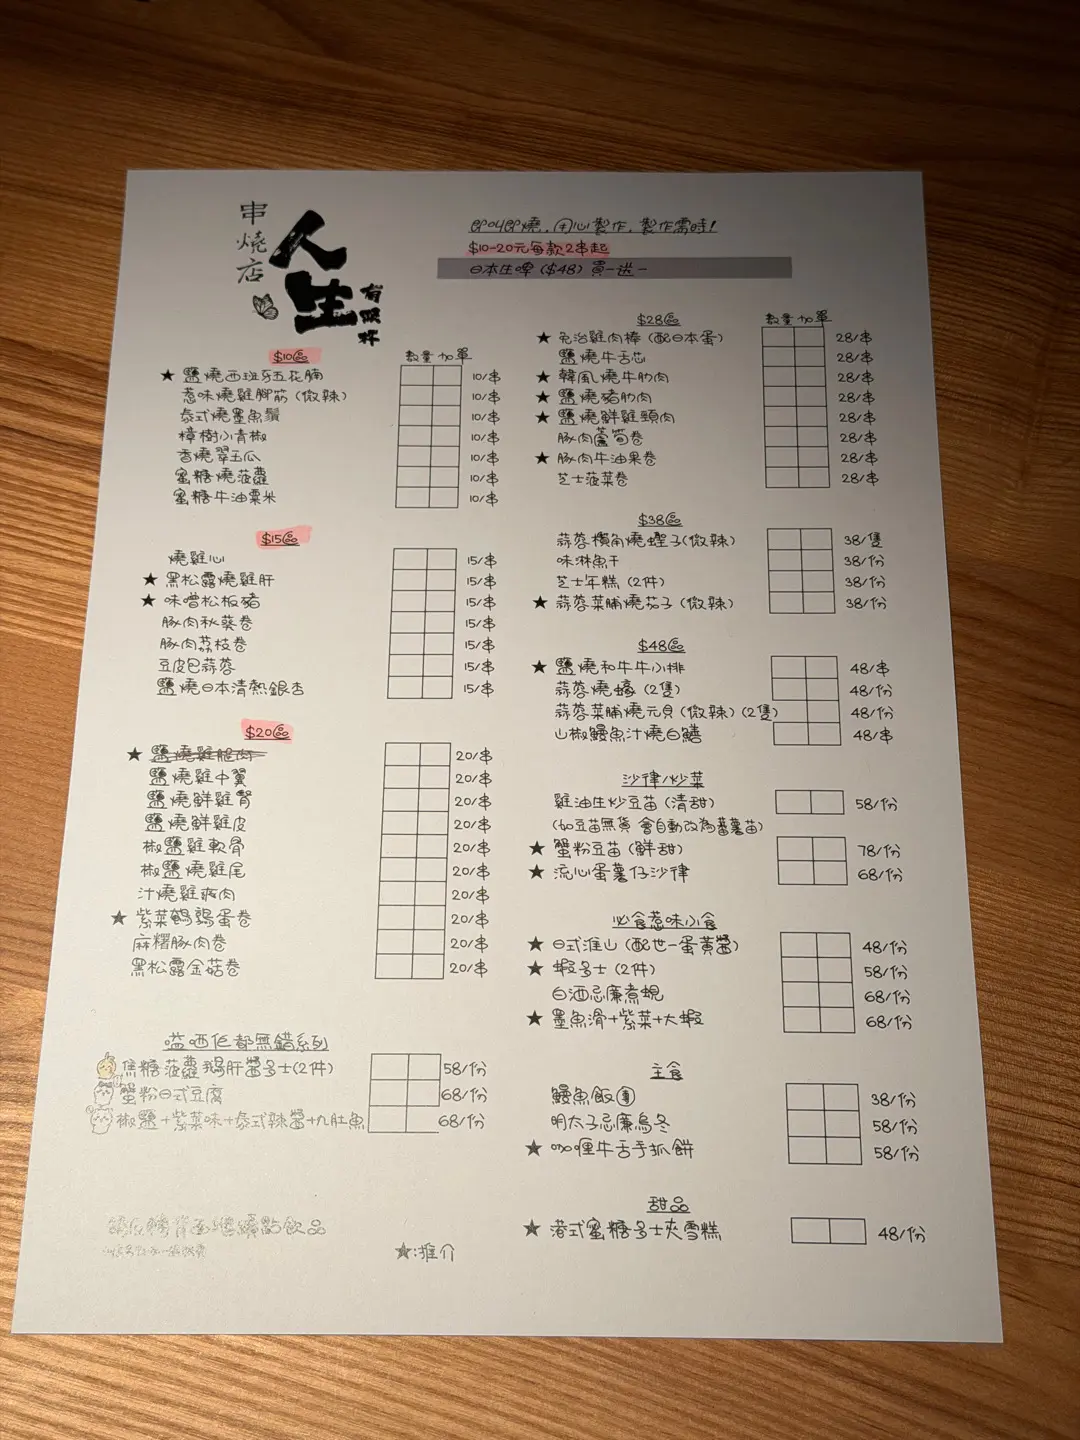 串燒店
人生
有限杯
即叫即燒,用心製作,製作需時!
$10-20元每款2串起
日本生啤($48)買一送一
$10區
數量 加單
★ 鹽燒西班牙五花腩 10/串
惹味燒雞腳筋(微辣) 10/串
泰式燒墨魚鬚 10/串
樟樹小青椒 10/串
香燒翠玉瓜 10/串
蜜糖燒菠蘿 10/串
蜜糖牛油粟米 10/串
$15區
燒雞心 15/串
★ 黑松露燒雞肝 15/串
★ 味噌松板豬 15/串
豚肉秋葵卷 15/串
豚肉荔枝卷 15/串
豆皮包蒜蓉 15/串
鹽燒日本清熱銀杏 15/串
$20區
★ 鹽燒雞腿肉 20/串
鹽燒雞中翼 20/串
鹽燒鮮雞腎 20/串
鹽燒鮮雞皮 20/串
椒鹽雞軟骨 20/串
椒鹽燒雞尾 20/串
汁燒雞爽肉 20/串
★ 紫菜鵪鶉蛋卷 20/串
麻糬豚肉卷 20/串
黑松露金菇卷 20/串
嗌晒佢都無錯系列
焦糖菠蘿鵝肝醬多士(2件) 58/份
蟹粉日式豆腐 68/份
椒鹽+紫菜味+泰式辣醬+九肚魚 68/份
飲品
★:推介
$28區
數量 加單
★ 免治雞肉棒(配日本蛋) 28/串
鹽燒牛舌芯 28/串
★ 韓風燒牛肋肉 28/串
★ 鹽燒豬肋肉 28/串
★ 鹽燒鮮雞頸肉 28/串
豚肉蘆筍卷 28/串
★ 豚肉牛油果卷 28/串
芝士菠菜卷 28/串
$38區
蒜蓉欖角燒蟶子(微辣) 38/隻
味淋魚干 38/份
芝士年糕(2件) 38/份
★ 蒜蓉菜脯燒茄子(微辣) 38/份
$48區
★ 鹽燒和牛牛小排 48/串
蒜蓉燒蠔(2隻) 48/份
蒜蓉菜脯燒元貝(微辣)(2隻) 48/份
山椒鰻魚汁燒白鱔 48/串
沙律/炒菜
雞油生炒豆苗(清甜) 58/份
(如豆苗無貨 會自動改為蕃薯苗)
★ 蟹粉豆苗(鮮甜) 78/份
★ 流心蛋薯仔沙律 68/份
必食惹味小食
★ 日式淮山(配世一蛋黃醬) 48/份
★ 蝦多士(2件) 58/份
白酒忌廉煮蜆 68/份
★ 墨魚滑+紫菜+大蝦 68/份
主食
鰻魚飯團 38/份
明太子忌廉烏冬 58/份
★ 咖喱牛舌手抓餅 58/份
甜品
★ 港式蜜糖多士夾雪糕 48/份